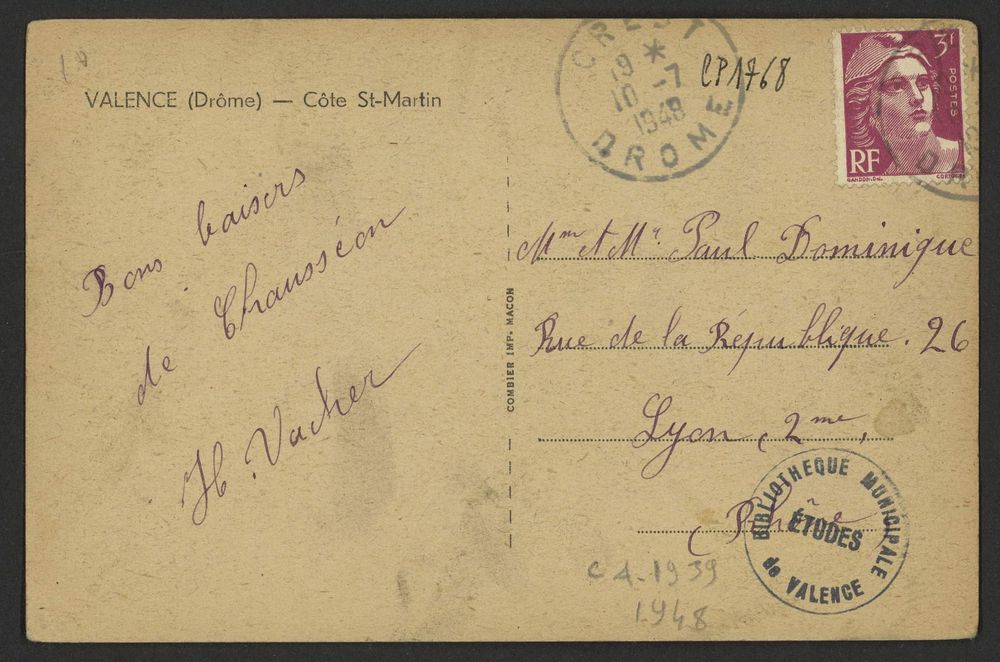 10
VALENCE (Drôme) — Côte St-Martin
Bons baisers
de Chausséon
H. Vacher
COMBIER IMP. MACON
CREST
19 *
10 -7
1948
DROME
CP1768
3f
POSTES
RF
GANDON.DEL.
Mme et Mr Paul Dominique
Rue de la République. 26
Lyon, 2me,
(Rhône)
BIBLIOTHEQUE MUNICIPALE
ÉTUDES
de VALENCE
C A-1939
1948